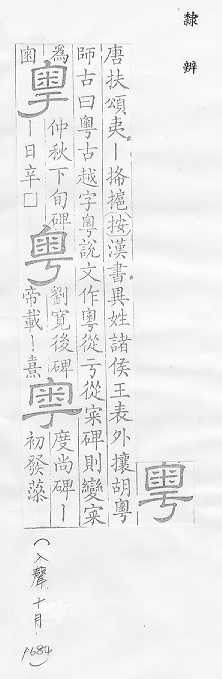 隸辨
粵
唐扶頌夷丨按漢書異姓諸侯王表外攘胡粵
師古曰粵古越字粵說文作粵從亏從宷碑則變宷
為
囪
粵
仲秋下旬碑
丨日辛□
粵
劉寬後碑
帝載丨熹
粵
度尚碑丨
初發藻
(入聲 十月 1684)